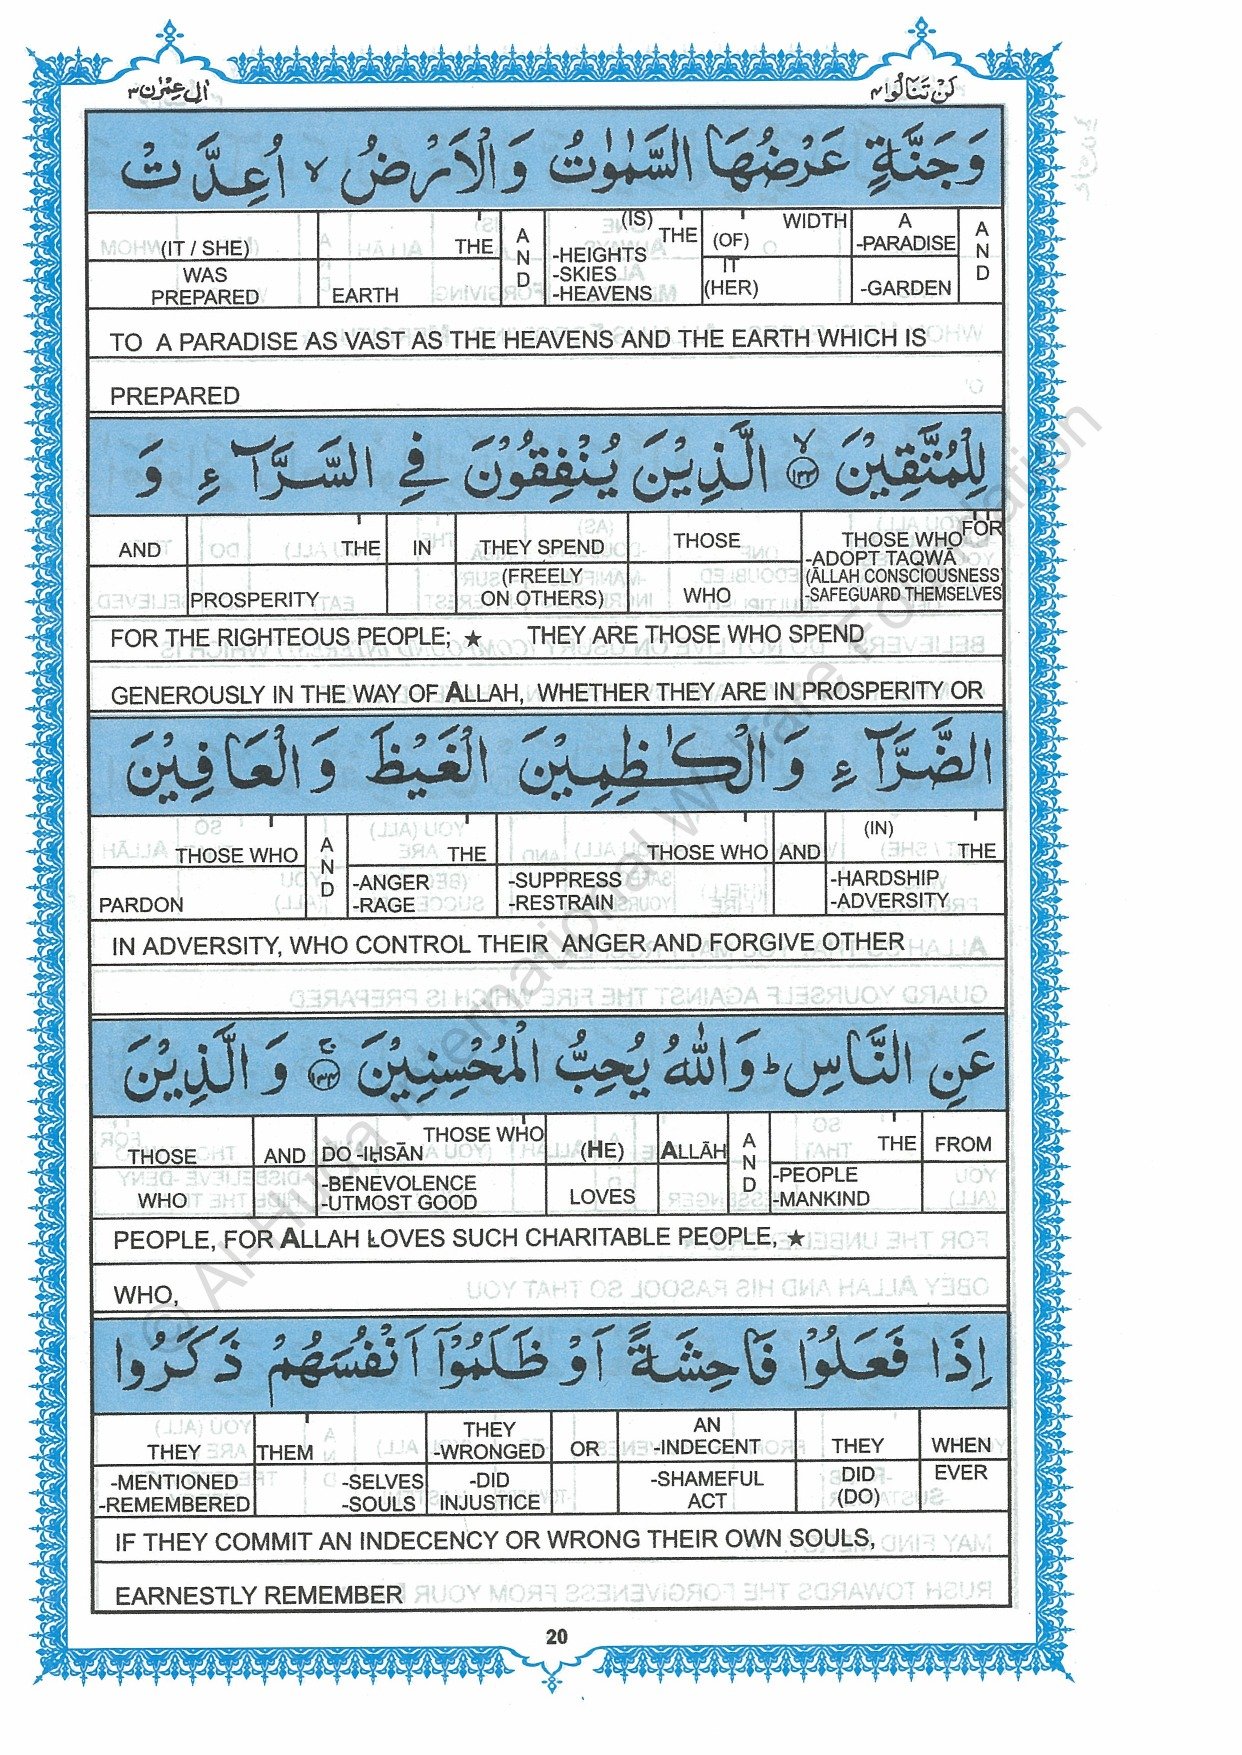 اٰل عِمْرٰن ٣ لَنْ تَنَالُوا ٤
وَجَنَّةٍ عَرْضُهَا السَّمٰوٰتُ وَالْاَرْضُ ۙ اُعِدَّتْ
AND -PARADISE A -GARDEN WIDTH (OF) IT (HER) (IS) THE -HEIGHTS -SKIES -HEAVENS AND THE EARTH (IT / SHE) WAS PREPARED
TO A PARADISE AS VAST AS THE HEAVENS AND THE EARTH WHICH IS
PREPARED
لِلْمُتَّقِيْنَ ۙ ١٣٣ الَّذِيْنَ يُنْفِقُوْنَ فِي السَّرَّآءِ وَ
FOR THOSE WHO -ADOPT TAQWĀ (ĀLLAH CONSCIOUSNESS) -SAFEGUARD THEMSELVES THOSE WHO THEY SPEND (FREELY ON OTHERS) IN THE PROSPERITY AND
FOR THE RIGHTEOUS PEOPLE; ★ THEY ARE THOSE WHO SPEND
GENEROUSLY IN THE WAY OF ALLAH, WHETHER THEY ARE IN PROSPERITY OR
الضَّرَّآءِ وَالْكٰظِمِيْنَ الْغَيْظَ وَالْعَافِيْنَ
(IN) THE -HARDSHIP -ADVERSITY AND THOSE WHO -SUPPRESS -RESTRAIN THE -ANGER -RAGE AND THOSE WHO PARDON
IN ADVERSITY, WHO CONTROL THEIR ANGER AND FORGIVE OTHER
عَنِ النَّاسِ ؕ وَاللّٰهُ يُحِبُّ الْمُحْسِنِيْنَ ۚ ١٣٤ وَالَّذِيْنَ
FROM THE -PEOPLE -MANKIND AND ALLĀH (HE) LOVES THOSE WHO DO -IḤSĀN -BENEVOLENCE -UTMOST GOOD AND THOSE WHO
PEOPLE, FOR ALLAH LOVES SUCH CHARITABLE PEOPLE, ★
WHO,
اِذَا فَعَلُوْا فَاحِشَةً اَوْ ظَلَمُوْٓا اَنْفُسَهُمْ ذَكَرُوا
WHEN EVER THEY DID (DO) AN -INDECENT -SHAMEFUL ACT OR THEY -WRONGED -DID INJUSTICE -SELVES -SOULS THEM THEY -MENTIONED -REMEMBERED
IF THEY COMMIT AN INDECENCY OR WRONG THEIR OWN SOULS,
EARNESTLY REMEMBER
20
© Al-Huda International Welfare Foundation